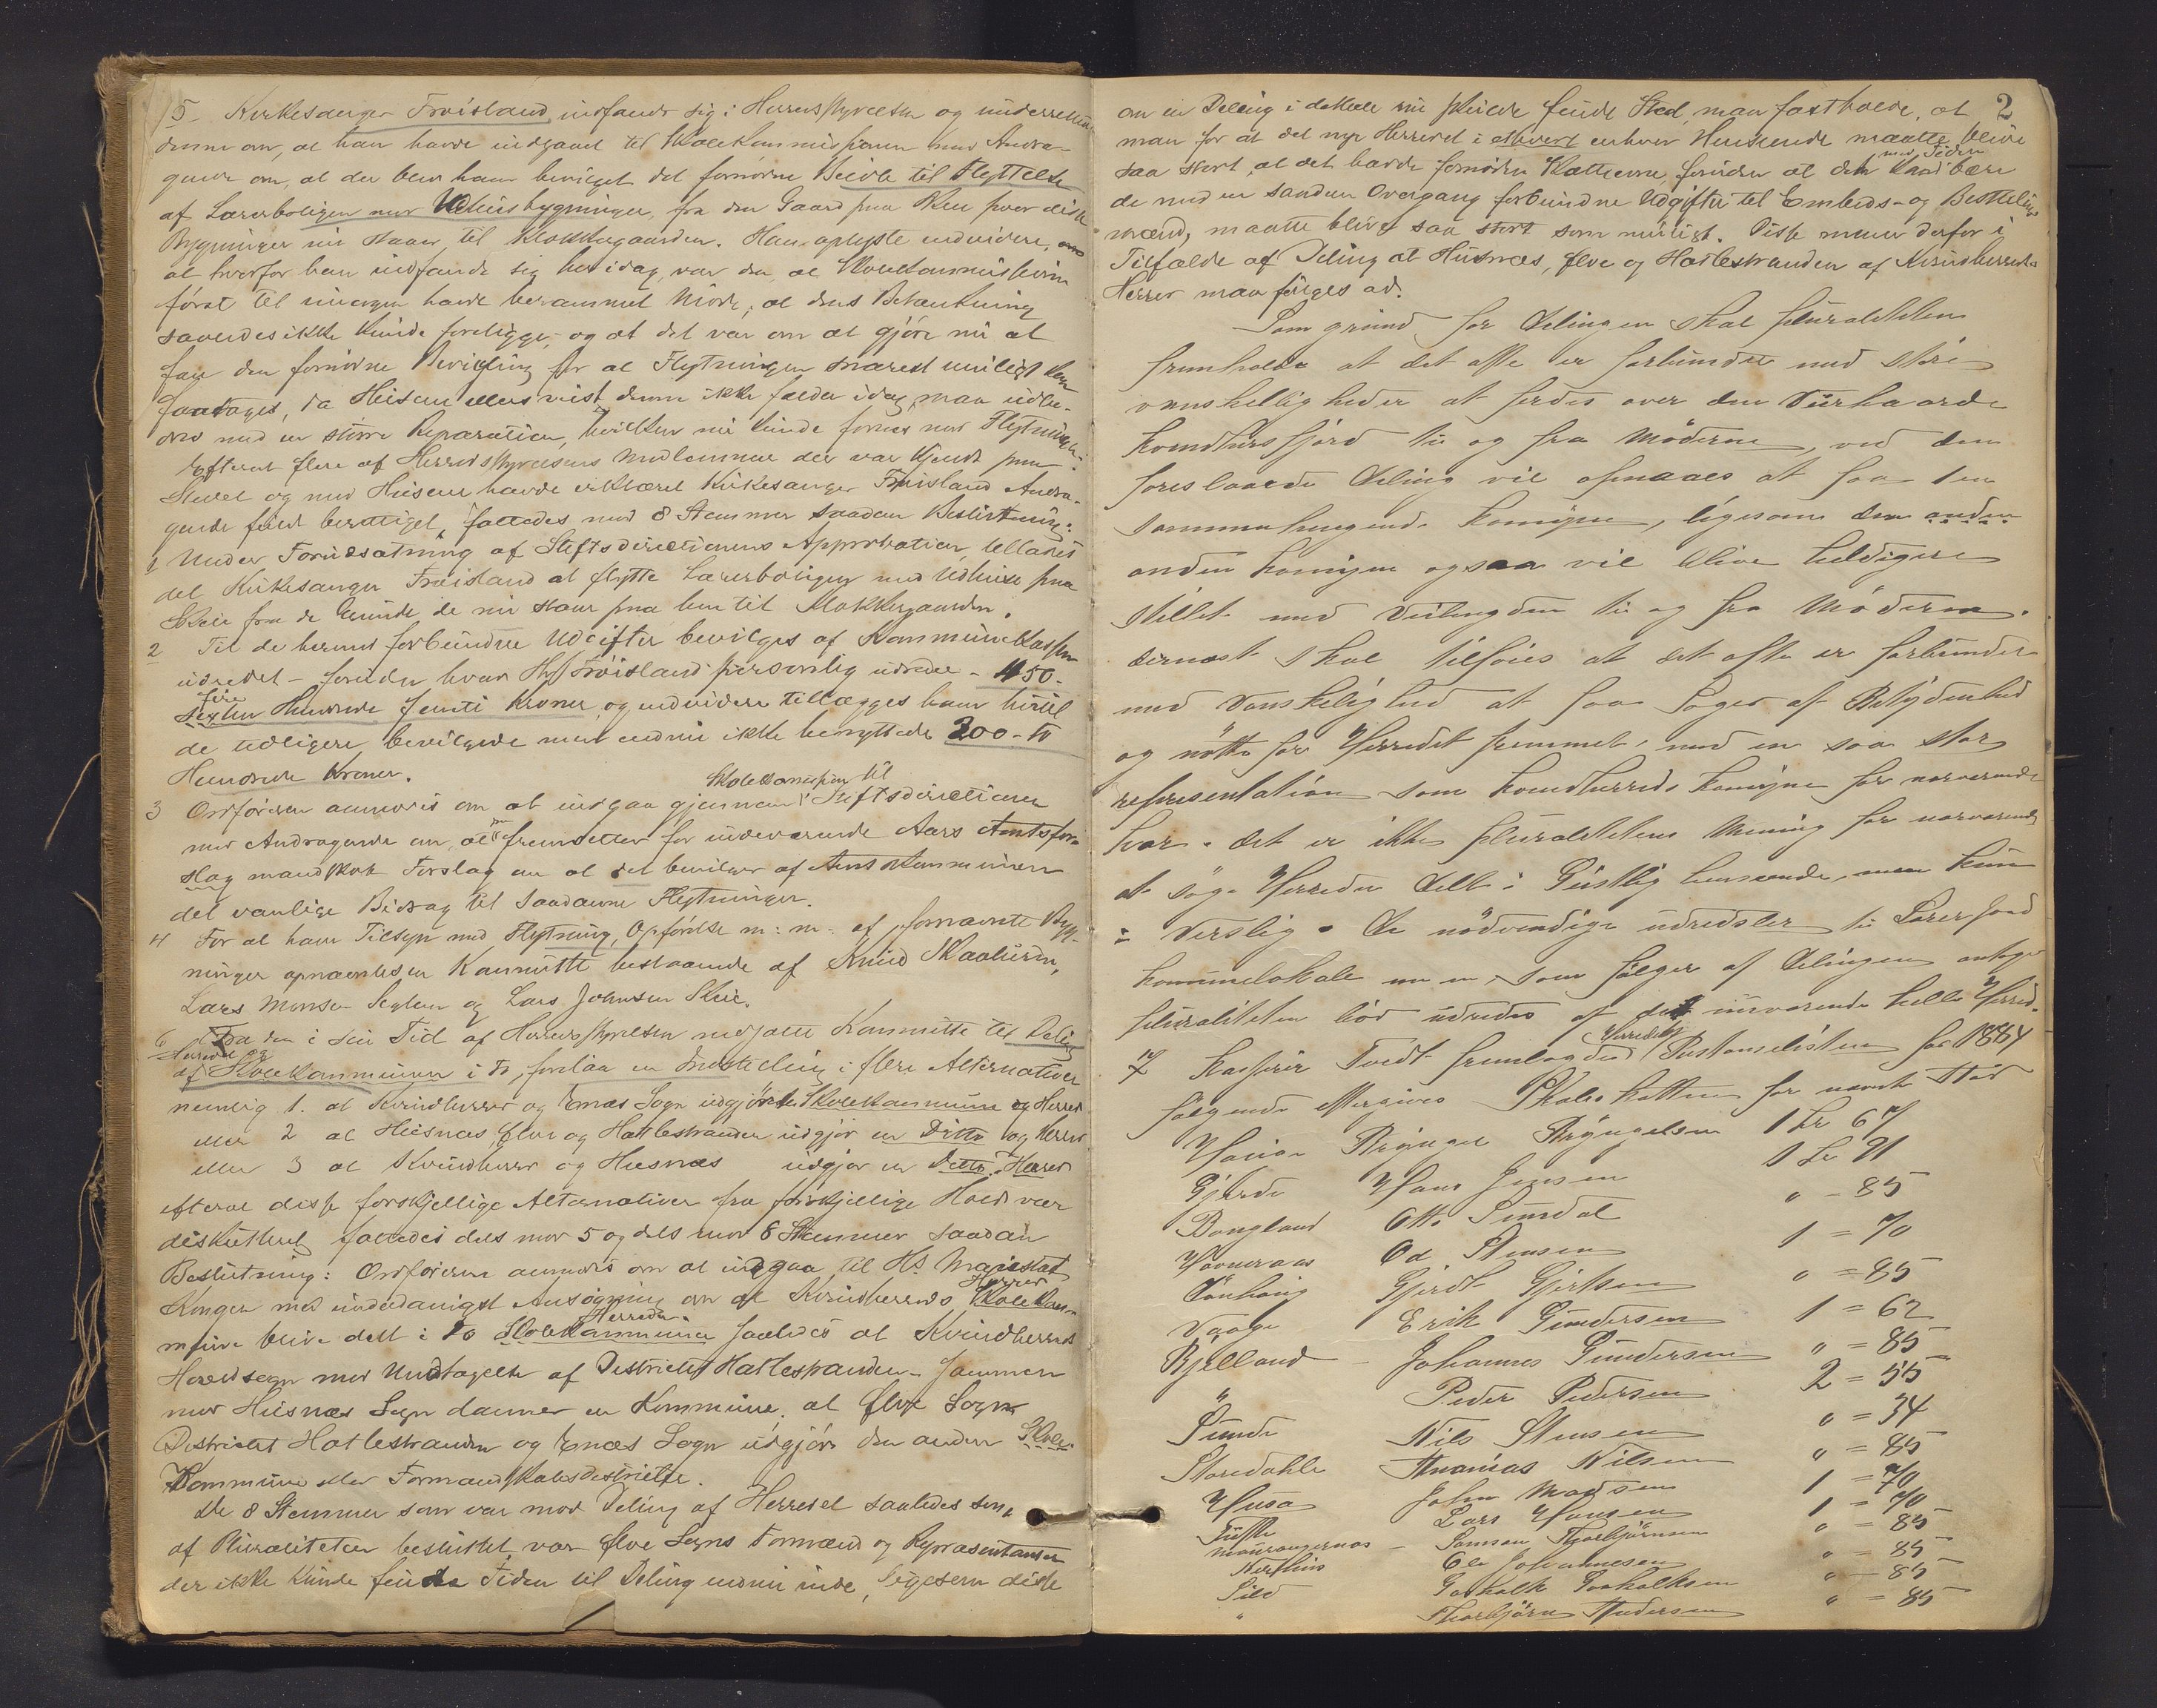 5 Kirkesanger Frøisland indfandt sig i Herredsstyrelsen og underrettede
denne om, at han havde indgaaet til Skolekommissionen med Andra-
gende om, at der blev ham bevilget det fornødne Beløb til Flyttelse
af Lærerboligen med Udhusbygninger, fra den Gaard paa Skeie hvor disse
Bygninger nu staaer, til Klokkergaarden. Han oplyste endvidere,
at hvorfor han indfandt sig her idag, var den at Skolekommissionen
først til imorgen havde berammet Møde, at dens Betænkning
saaledes ikke kunde foreligge, og at det var om at gjøre nu at
faae den fornødne Bevilgning for at Flytningen snarest muligt kan
foretages, da Husene ellers vist denne ikke falder idag maa udbe-
dres med en større Reparation, hvilken nu kunde forenes med Flytningen.
Efterat flere af Herredsstyrelsens Medlemmer der var kjendt paa
Stedet og med Husene havde erklæret Kirkesanger Frøisland Andra-
gende fuldt berettiget, fattedes med 8 Stemmer saadan Beslutning:
1 Under Forudsætning af Stiftsdirectionens Approbation, tillades
det Kirkesanger Frøisland at flytte Lærerboligen med Udhuse paa
Skeie fra de Grunde de nu staar paa hen til Klokkergaarden.
2 Til de hermed forbundne Udgifter bevilges af Kommunekassen
udredet – foruden hvad Hr Frøisland personlig udreder – 450 –
fire
Hundrede femti Kroner, og endvidere tillægges ham hertil
de tidligere bevilgede men endnu ikke benyttede 200 – to
Hundrede Kroner.
3 Ordføreren anmodes om at indgaa gjennem Skolekommissionen til Stiftsdirectionen
med Andragende om, at fremsætter for indeværende Aars Amtsfor-
mandskab Forslag om at det bevilger af Amtskommunen
det vanlige Bidrag til saadanne Flytninger.
4 For at have Tilsyn med Flytning, Opførelse m: m: af fornævnte Byg-
ninger opnævntes en Kommitte bestaaende af Knud Skaaluren,
Lars Monsen Seglem og Lars Johnsen Skeie.
6 Fra den i sin Tid af Herredsstyrelsen nedsatte Kommitte til Deling
Herredet og
af Skolekommunen i to, forelaa en Indstilling i flere Alternativer
nemlig 1. at Kvindherred og Ænes Sogn udgjør Skolekommune og Herred
eller 2 at Husnæs, Ølve og Hatlestranden udgjør en Ditto og Herred
eller 3 at Kvindherred og Husnæs udgjør en Ditto. Herred
efterat disse forskjellige Alternativer fra forskjellige Hold var
diskutteret fattedes dels mod 5 og dels mod 8 Stemmer saadan
Beslutning: Ordføreren anmodes om at indgaa til Hs. Majestæt
Kongen med underdanigst Ansøgning om at Kvindherreds Herred Skolekom-
mune blive delt i to Herreder Skolekommuner saaledes at Kvindherred
Hovedsogn med Undtagelse af Districtet Hatlestranden – sammen
med Husnæs Sogn danner en Kommune, at Ølve Sogn
Districtet Hatlestranden og Ænæs Sogn udgjøre den anden Skole-
Kommune eller Formandskabsdistrikt.
De 8 Stemmer som var mod Deling af Herredet saaledes som
af Pluraliteten besluttet, var Ølve Sogns Formænd og Repræsentanter
der ikke kunde finde Tiden til Deling endnu inde, ligesom disse
2
om en Deling i dettele nu skulde finde Sted, maa fastholde, at
man for at det nye Herred i ethvert enhver Henseende maatte blive
saa stort, at det havde fornøden Skatteevne, foruden at det med Tiden kand bære
de med en saadan Overgang forbundne Udgifter til Embeds- og Bestillings
mænd, maatte blive saa stort som muligt. Disse mener derfor i
Tilfælde af Deling at Husnæs, Ølve og Hatlestranden af Kvindherreds
Herred maa følges ad.
Som grund for Delingen skal pluraliteten
fremholde at det ofte er forbundet med store
vanskelligheder at ferdes over den veirhaarde
Kvindherrsfjord til og fra Møderne, ved den
foreslaaede Deling vil opnaaes at faa en
sammenhengende Komune, ligesom den anden
anden Komune ogsaa vil blive heldigere
stillet med Veilengden til og fra Møderne.
dernæst skal tilføies at det ofte er forbundet
med Vanskelighed at faa Sager af Betydenhed
og nøtte for Herredet fremmet, med en saa stor
representation som Kvindherreds Komune for nærværende
har. det er ikke pluralitetens Mening for nærværende
at søge Herredet delt i Geistlig henseende, men kun
i Verslig. De nødvendige udredsler til Lærerjord
Komunelokale m m, som følger af Delingen antager
pluraliteten bør udredes af det nuværende hele Herred.
7 Kasserer Tvedt fremlagde Herredets Restanselisten for 1884
følgende eftergives Skoleskatten for nævnte Aar
Brynjel Brynjelsen 1 Kr 67
Gjerde Hans Jensen 1 Kr 91
Bongland Otto Sundal " – 85
Od Stensen 1 = 70
Gjerdt Gjertsen " = 85
Vaage Erik Gundersen 1 = 62
Bjelland – Johannes Gundersen " = 85
" Peder Pedersen 2 = 55
Sunde Nils Stensen " = 34
Storedahle Ananias Nilsen " = 85
Husa John Madsen 1 = 70
Tufte Lars Hansen 1 = 70
Maurangernæs – Samson Thorbjørnsen " = 85
Ole Johannesen " = 85
Sild Godskalk Godskalksen " = 85
" Thorbjørn Andersen " = 85